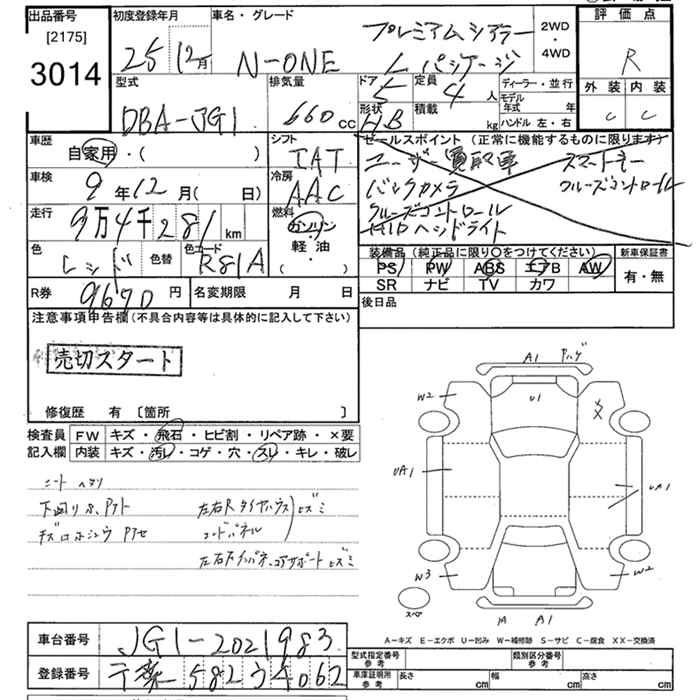 出品番号
[2175]
3014
初度登録年月
25 12月
車名・グレード
プレミアム ツアラー
N-ONE
L パッケージ
2WD
・
4WD
評価点
R
外装 内装
C C
型式
DBA-JG1
排気量
660 cc
ドア 5
形状 HB
定員 4 人
積載 kg
ディーラー・並行
モデル年式 年
ハンドル 左・右
車歴
自家用・( )
シフト
IAT
セールスポイント (正常に機能するものに限ります)
ユーザー買取車 スマートキー
バックカメラ クルーズコントロール
クルーズコントロール
HIDヘッドライト
車検
9年12月( 日)
冷房
AAC
走行
9万4千281 km
燃料
ガソリン
軽・油
・( )
色
レッド
色替
色コード
R81A
装備品 (純正品に限り○をつけてください)
PS PW ABS エアB AW
SR ナビ TV カワ
新車保証書
有・無
R券 9670 円
名変期限 月 日
後日品
注意事項申告欄(不具合内容等は具体的に記入して下さい)
売切スタート
修復歴 有 [箇所 ]
検査員
記入欄
FW キズ・飛石・ヒビ割・リペア跡・×要
内装 キズ・汚レ・コゲ・穴・スレ・キレ・破レ
シート ヘタリ
左右R タイヤハウス
コーナーパネル
ヒズミ
A1
W2
U1
UA1
UA1
W3
W2
スペア
A1
A-キズ E-エクボ U-凹み W-補修跡 S-サビ C-腐食 XX-交換済
車台番号 JG1-2021983
登録番号 千葉 582 う 4062
型式指定番号
参考
類別区分番号
参考
車庫証明所
参考
長さ cm
幅 cm
高さ cm